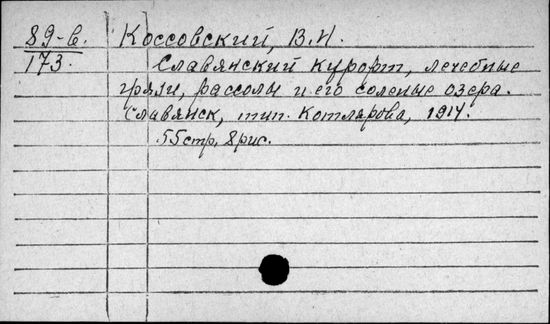 89-в. Коссовский, В.И.
173. Славянский курорт, лечебные
грязи, рассолы и его соленые озера.
Славянск, тип. Котлярова, 1914.
55стр, 8рис.